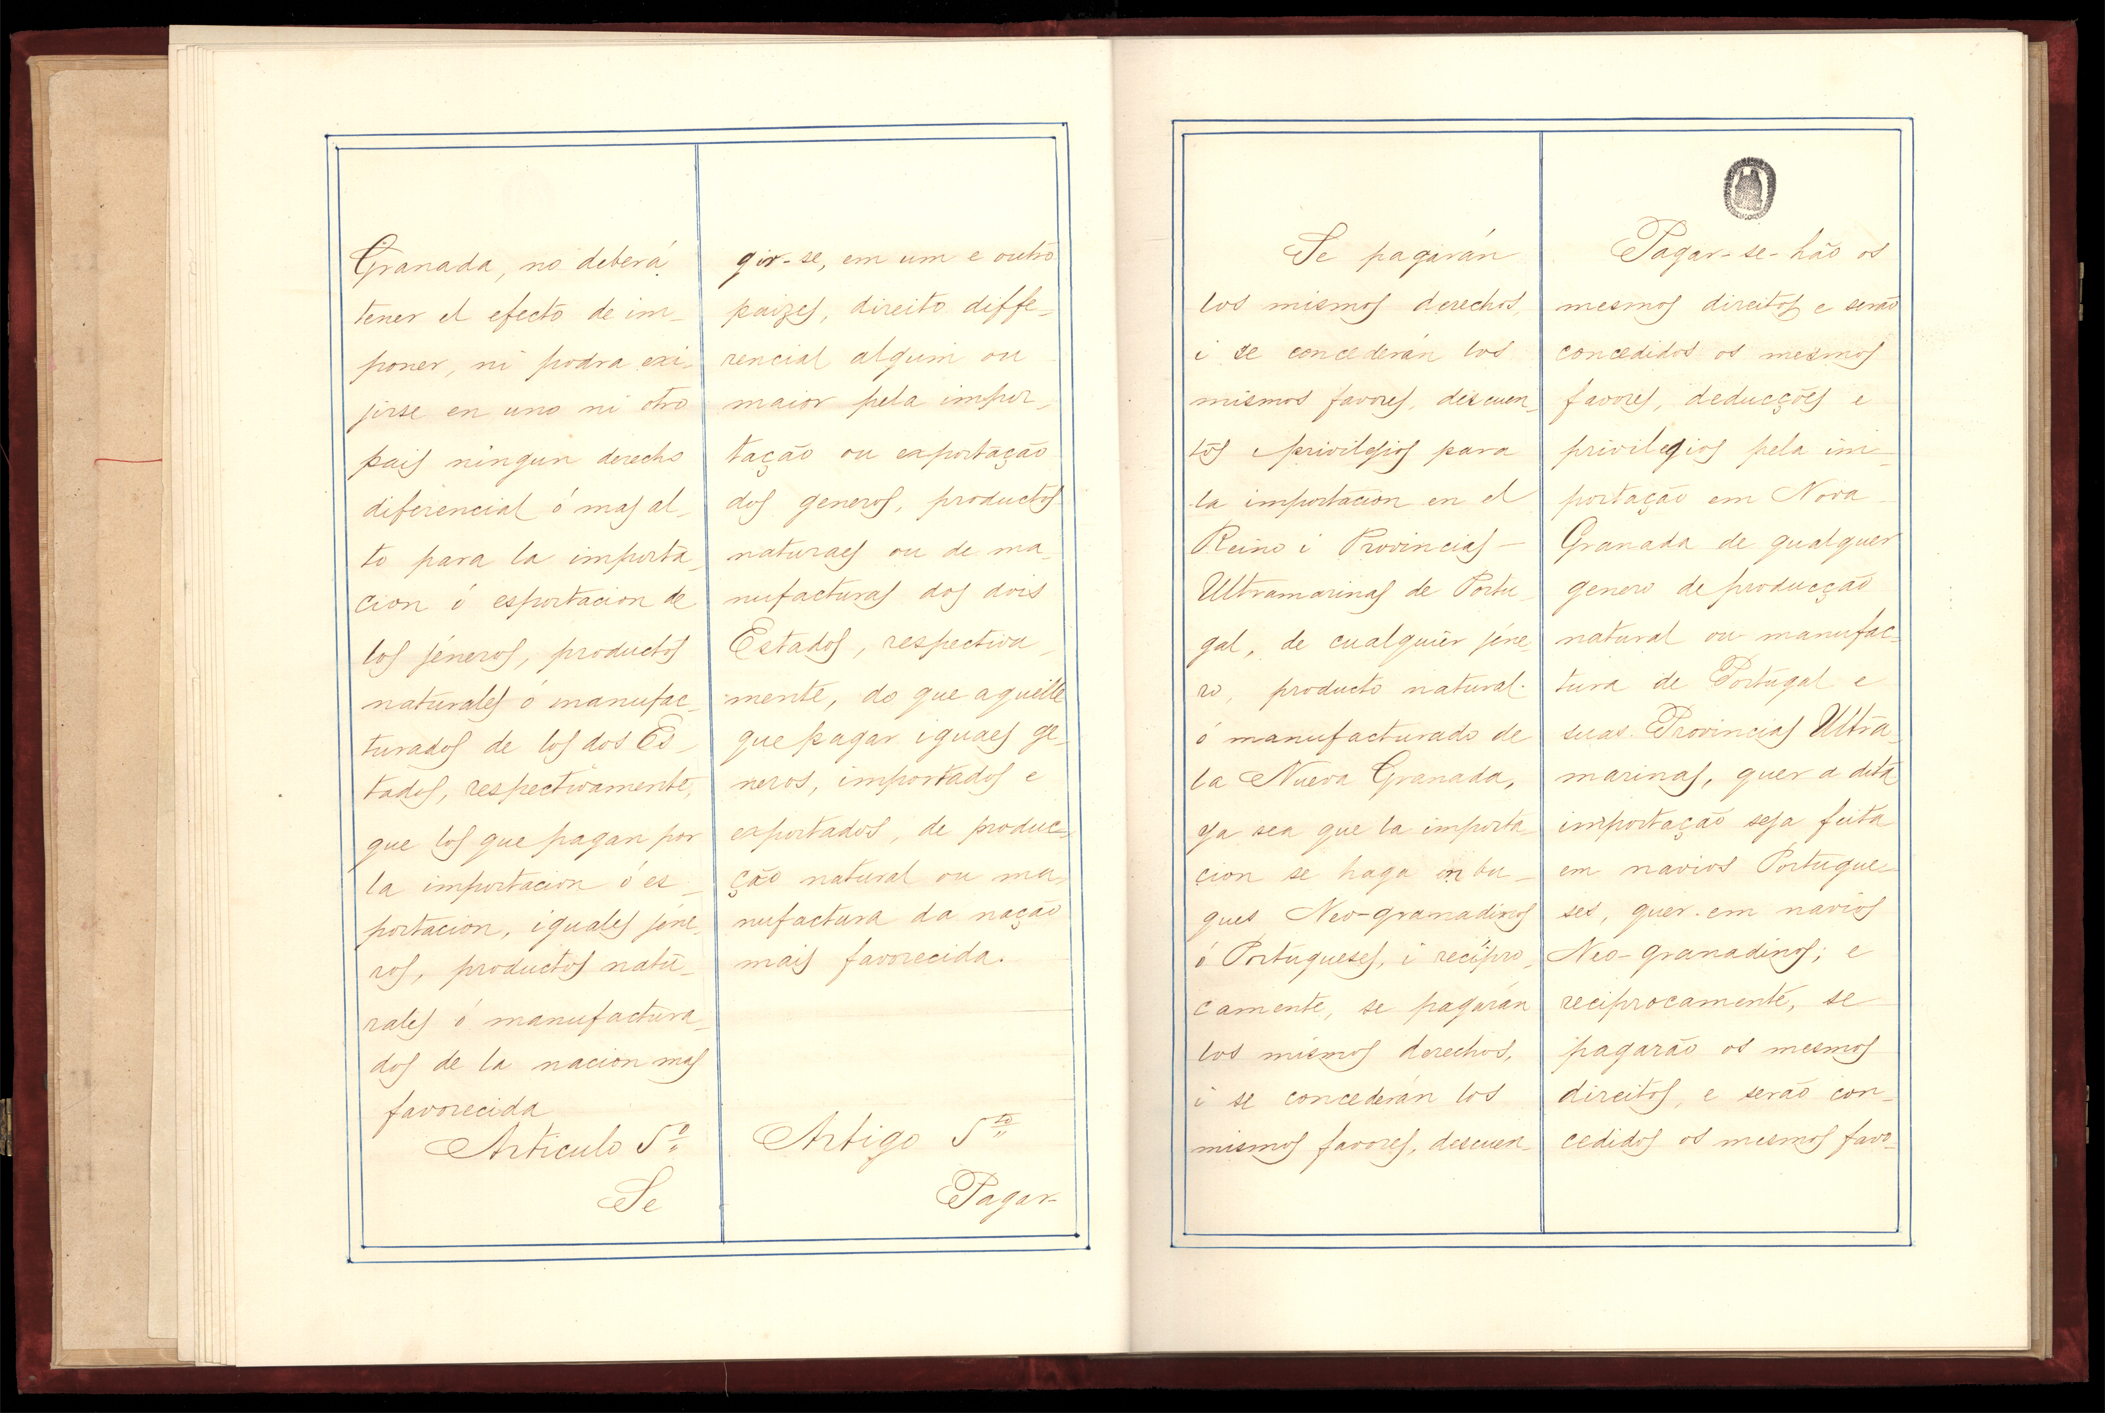 Granada, no deberá
tener el efecto de im-
poner, ni podra exi-
jirse en uno ni otro
pais ningun derecho
diferencial ó mas al-
to para la importa-
cion ó esportacion de
los jéneros, productos
naturales ó manufac-
turados de los dos Es-
tados, respectivamente,
que los que pagan por
la importacion ó es-
portacion, iguales jéne-
ros, productos natu-
rales ó manufactura-
dos de la nacion mas
favorecida
Articulo 5º
Se
gir-se, em um e outro
paizes, direito diffe-
rencial algum ou
maior pela impor-
tação ou exportação
dos generos, productos
naturaes ou de ma-
nufacturas dos dois
Estados, respectiva-
mente, do que aquelle
que pagar iguaes ge-
neros, importados e
exportados, de produc-
ção natural ou ma-
nufactura da nação
mais favorecida.
Artigo 5to
Pagar-
Se pagarán
los mismos derechos,
i se concederán los
mismos favores, descuen-
tos i privilejios para
la importacion en el
Reino i Provincias
Ultramarinas de Portu-
gal, de cualquier jéne-
ro, producto natural
ó manufacturado de
la Nueva Granada,
ya sea que la importa-
cion se haga en bu-
ques Neo-granadinos
ó Portugueses, i recípro-
camente, se pagarán
los mismos derechos,
i se concederán los
mismos favores, descuen-
Pagar-se-hão os
mesmos direitos e serão
concedidos os mesmos
favores, deducções e
privilegios pela im-
portação em Nova
Granada de qualquer
genero de producção
natural ou manufac-
tura de Portugal e
suas Provincias Ultra-
marinas, quer a dita
importação seja feita
em navios Portugue-
ses, quer em navios
Neo-granadinos; e
reciprocamente, se
pagarão os mesmos
direitos, e serão con-
cedidos os mesmos favo-